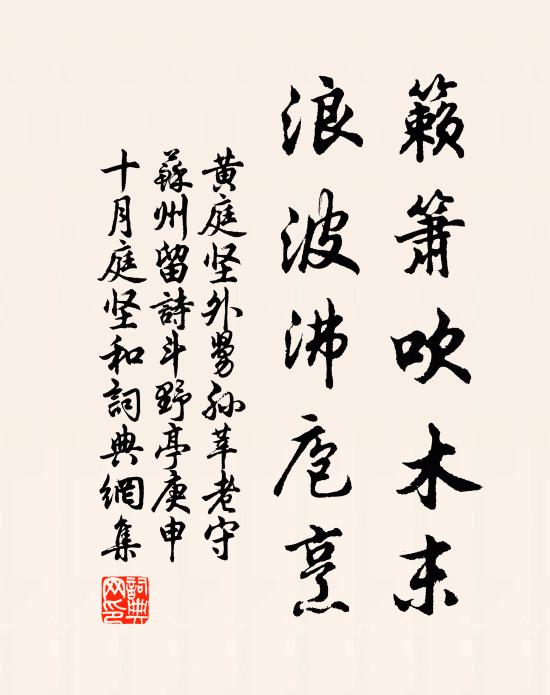 籟簫吹木末
浪波沸庖烹
黄庭坚外舅孙莘老守
蘇州留詩斗野亭庚申
十月庭坚和詞典網集
詞典网印